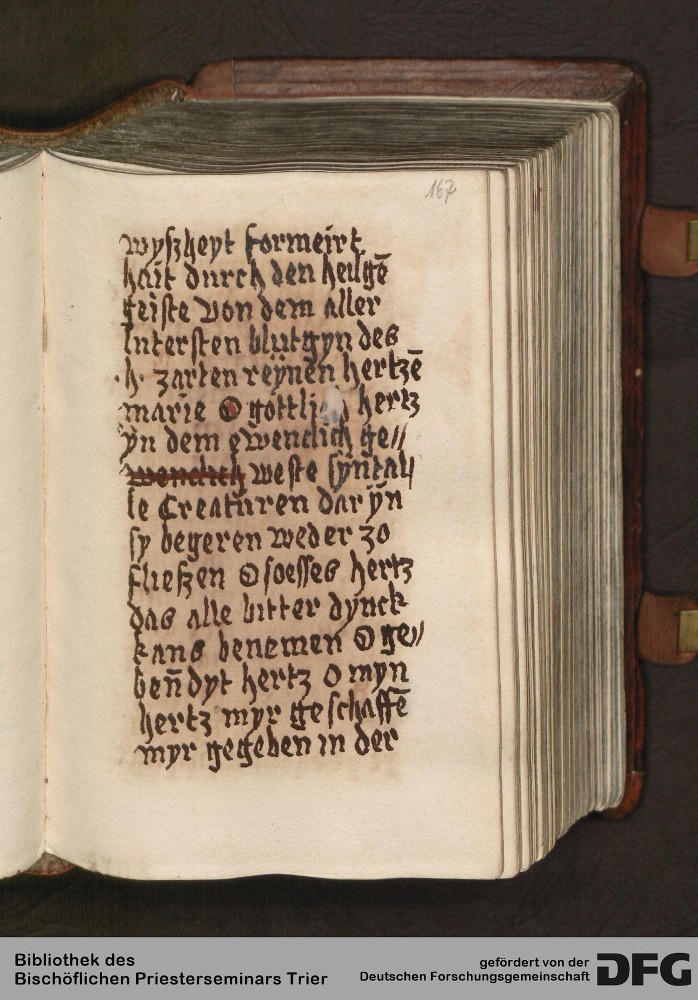 167
wyſzheyt formeirt
hait durch den heilgē
geiſte von dem aller
Interſten blutgyn des
h. zarten reÿnen hertzē
marie O gottlich hertz
ÿn dem ewenclich ge//
wenclich weſte ſÿnt al//
le Creatüren dar ÿn
ſy begeren weder zo
fließen O ſoesses hertz
das alle bitter dynck
kans benemen O ge//
beñdyt hertz O myn
hertz myr geſchaffē
myr gegeben in der
Bibliothek des
Bischöflichen Priesterseminars Trier
gefördert von der
Deutschen Forschungsgemeinschaft
DFG